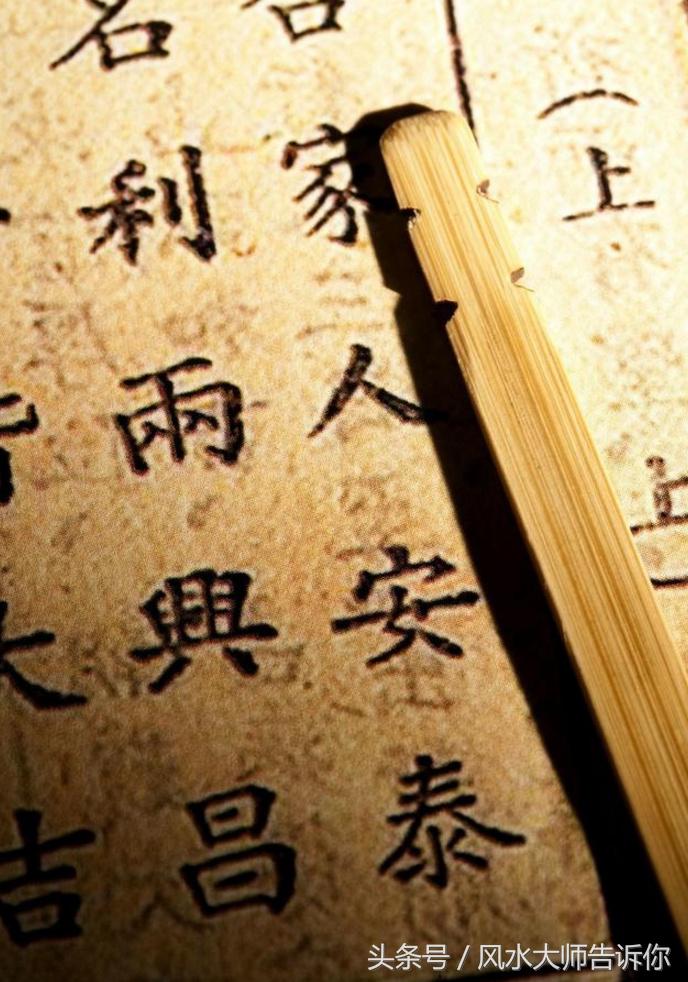 （上上
家人安泰
名利兩興昌
吉
头条号 / 风水大师告诉你